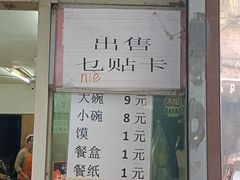 出售
乜贴卡
nie
大碗 9元
小碗 8元
馍 1元
餐盒 1元
餐纸 1元